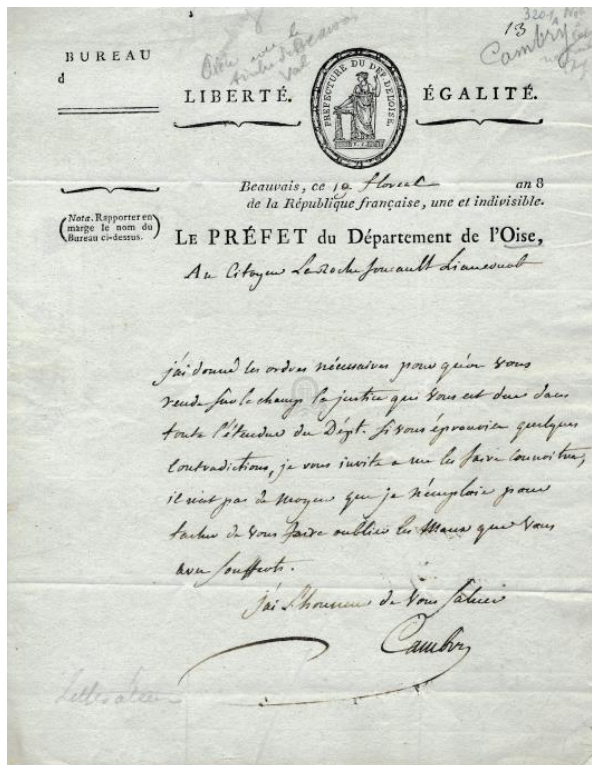 13
3201
Cambry
Oise avec le
timbre de Beauvais
BUREAU
d
LIBERTÉ.
PREFECTURE DU DEP. DE LOISE.
ÉGALITÉ.
Beauvais, ce 19 floreal an 8
de la République française, une et indivisible.
(Nota. Rapporter en
marge le nom du
Bureau ci-dessus.)
LE PRÉFET du Département de l'Oise,
Au Citoyen LaRochefoucault Liancourt
j'ai donné les ordres nécessaires pour qu'on vous
rende sur le champ la justice qui vous est due dans
toute l'étendue du Dépt. si vous éprouviez quelques
contradictions, je vous invite a me les faire connoitre,
il n'est pas de moyen que je n'emploie pour
tacher de vous faire oublier les Maux que vous
avez soufferts.
j'ai l'honneur de vous saluer
Cambry